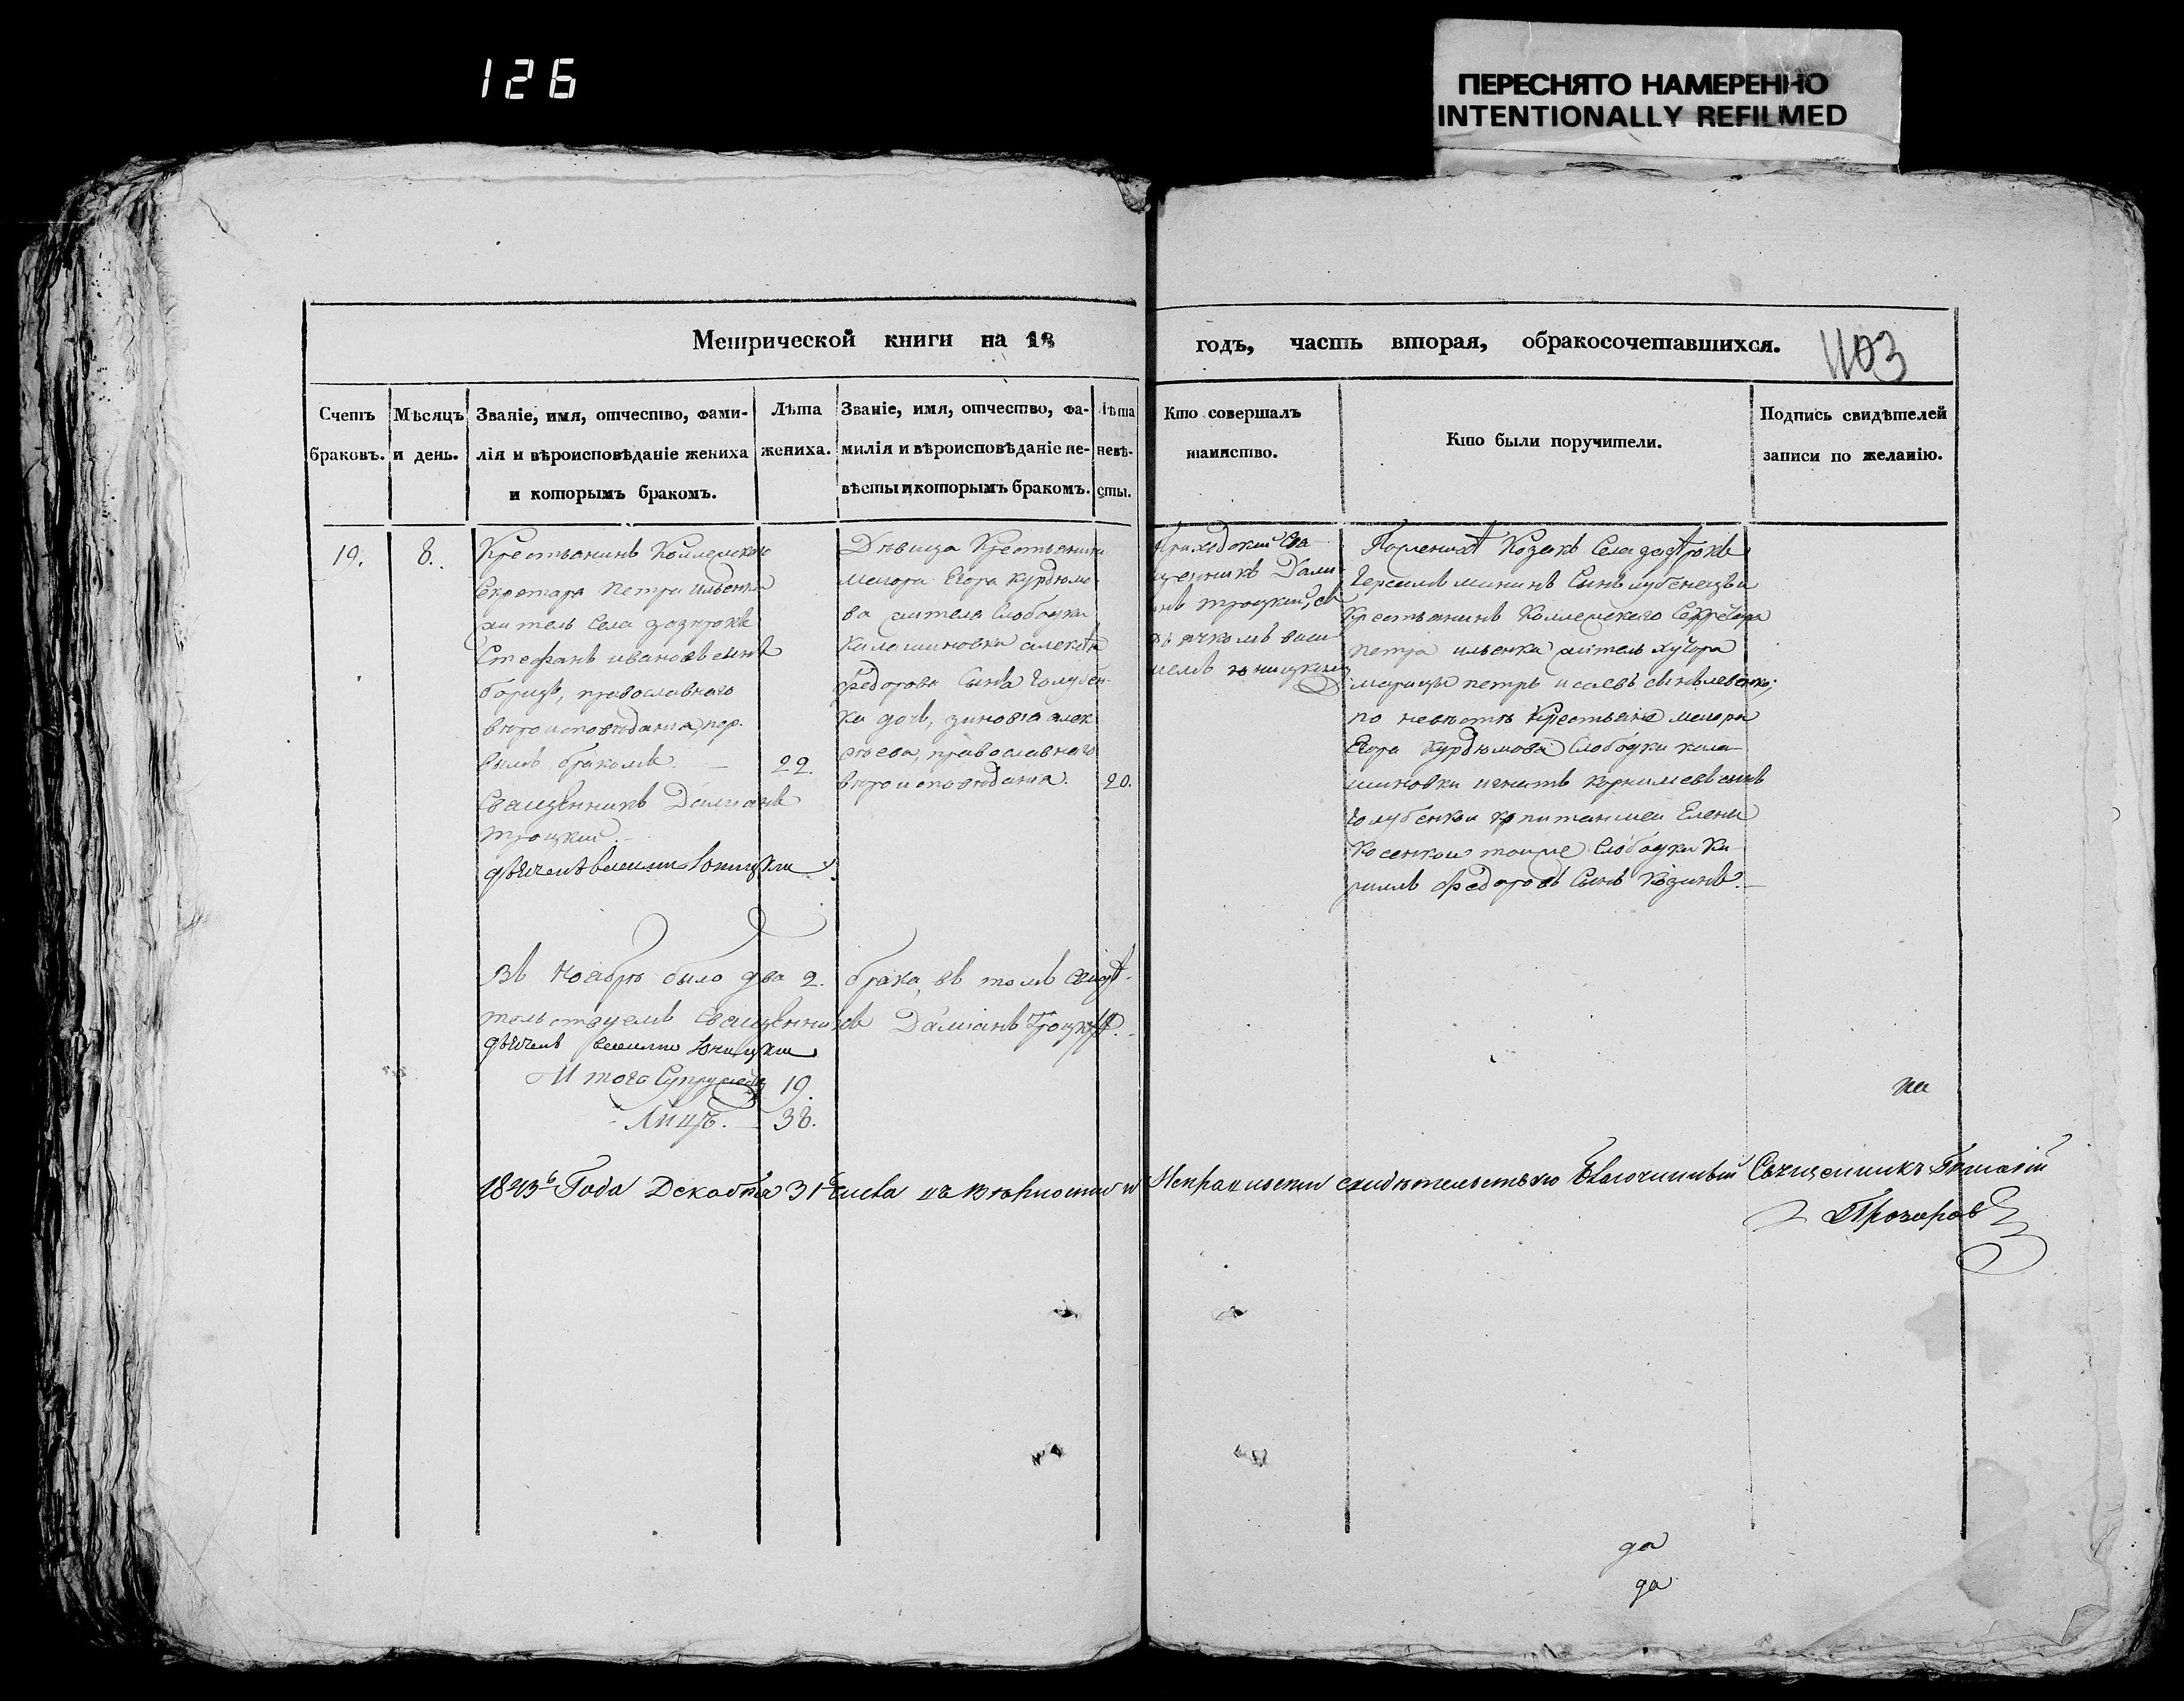 126
ПЕРЕСНЯТО НАМЕРЕННО
INTENTIONALLY REFILMED
Метрической книги на 18
годъ, часть вторая, обракосочетавшихся.
1103
Счетъ
браковъ.
Мѣсяцъ
и день.
Званіе, имя, отчество, фами-
лія и вѣроисповѣданіе жениха
и которымъ бракомъ.
Лѣта
жениха.
Званіе, имя, отчество, фа-
милія и вѣроисповѣданіе не-
вѣсты и которымъ бракомъ.
Лѣта
невѣ-
сты.
Кто совершалъ
таинство.
Кто были поручители.
Подпись свидѣтелей
записи по желанію.
19.
8.
Крестьянинъ Коллежскаго
Секретаря Петра Ильенка
житель Села
Стефанъ Ивановъ сынъ
борецъ, православнаго
вѣроисповѣданія, пер
вымъ бракомъ.
22.
Священникъ Даміанъ
Троцкий.
Дѣвица Крестьянина
маіора Егора Курдюмо
ва жителя Слободки
Калашиновки Алексѣя
Федорова Сына Голубен-
ка дочь, зиновія алек
сѣева, православнаго
вѣроисповѣданія.
20.
Приходский Свя
щенникъ Дамі
анъ Троцкий, съ
дьячкомъ васи
лемъ юницкимъ
По женихѣ Козакъ Села
минынъ Сынъ
Крестьянинъ Коллежскаго Секретаря
петра ильенка житель Хутора
марицы петръ исаевъ сынъ левенко;
по невѣстѣ Крестьяне маіора
Егора Курдюмова Слободки кала-
шиновки игнатъ Корниліевъ сынъ
Голубенко и Елены
Косенковой тоиже Слободки Ки
рилъ Федоровъ Сынъ Козинъ.
Въ Ноябрѣ было два 2. брака, въ томъ свидѣ-
тельствуемъ Священникъ Даміанъ Троцкий.
Итого Супружествъ 19.
Лицъ. 38.
на
1843го Года Декабря 31 числа въ вѣрности и Исправности свидѣтельствую Благочинный Священникъ
да
да